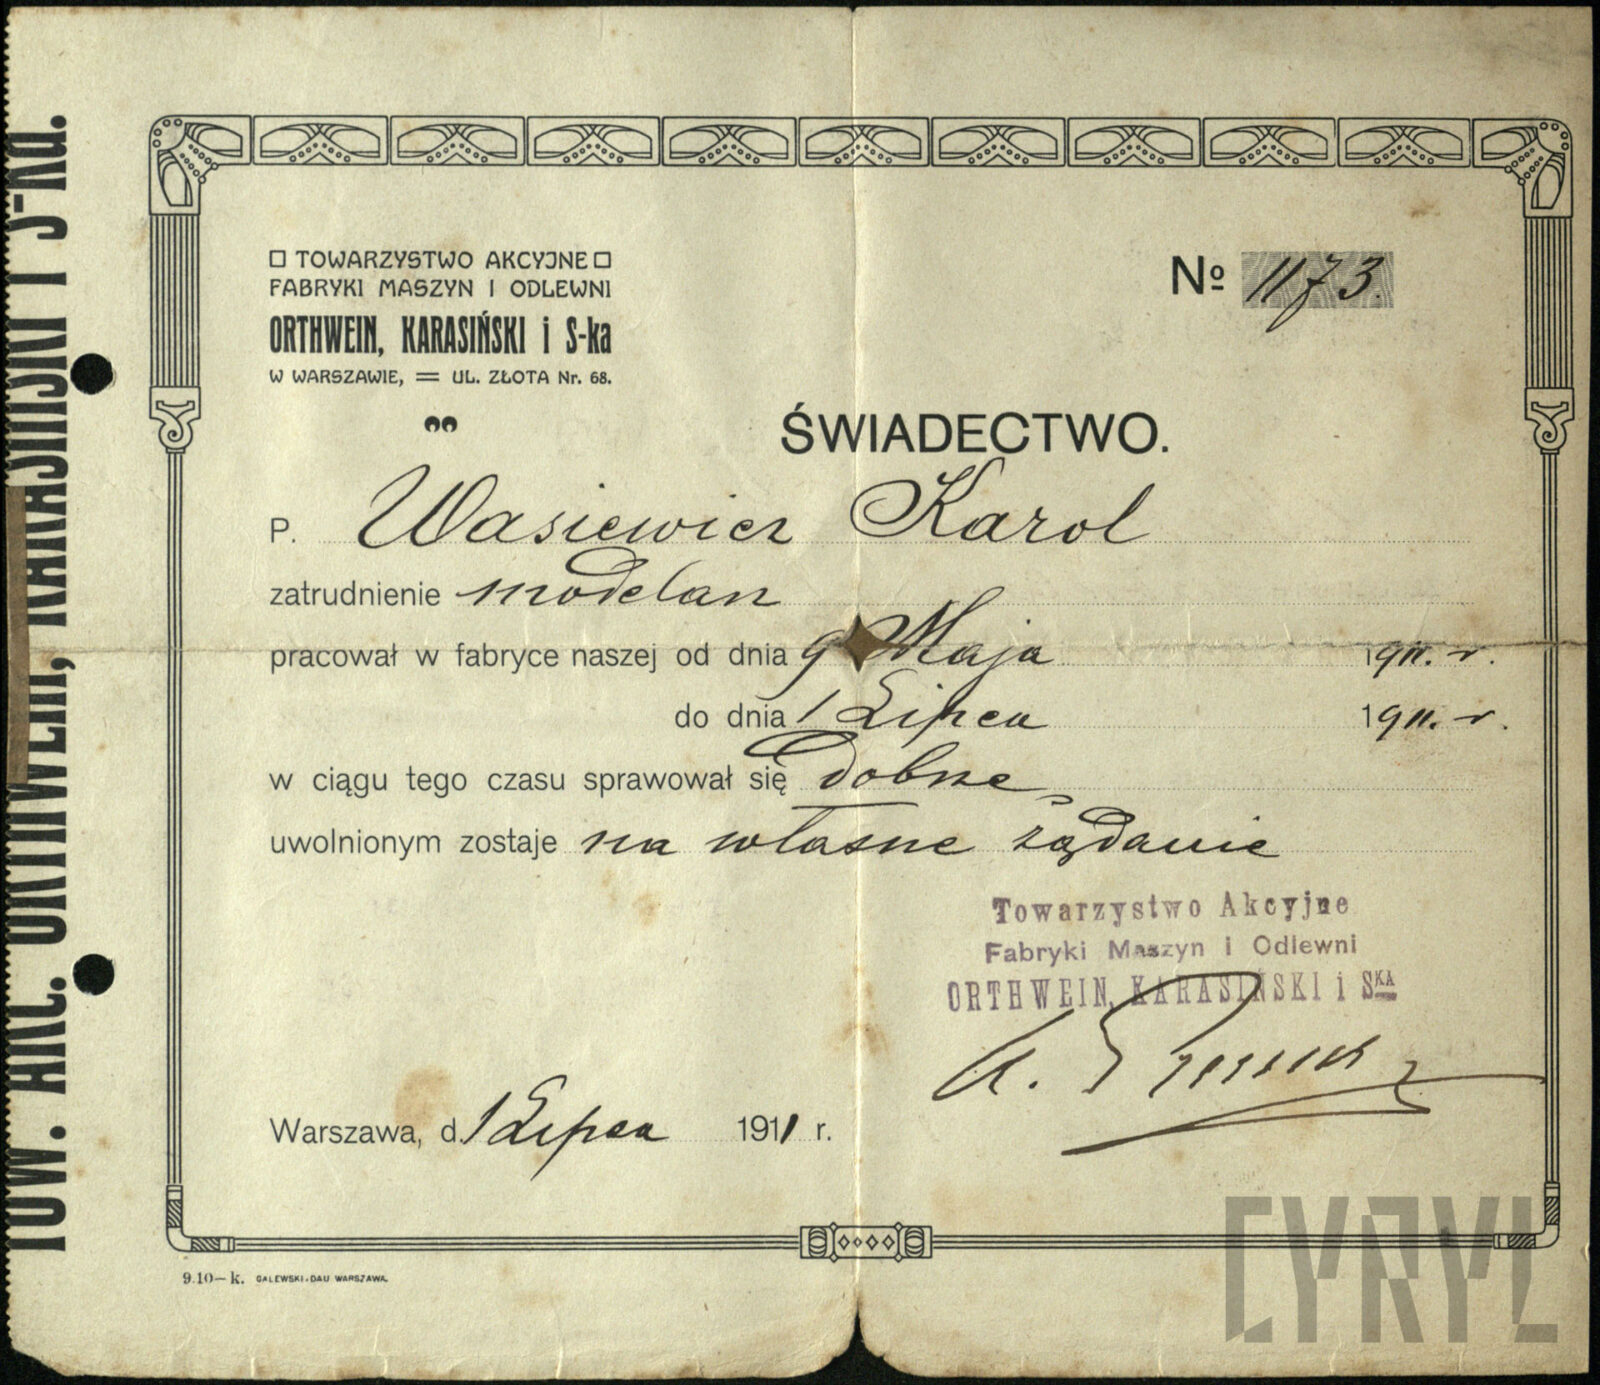 TOW. AKC. ORTHWEIN, KARASIŃSKI I S-KA.
TOWARZYSTWO AKCYJNE
FABRYKI MASZYN I ODLEWNI
ORTHWEIN, KARASIŃSKI i S-ka
W WARSZAWIE, = UL. ZŁOTA Nr. 68.
No 1173.
ŚWIADECTWO.
P. Wasiewicz Karol
zatrudnienie modelarz
pracował w fabryce naszej od dnia 9 Maja 1911. r.
do dnia 1 Lipca 1911. r.
w ciągu tego czasu sprawował się dobrze,
uwolnionym zostaje na własne żądanie
Towarzystwo Akcyjne
Fabryki Maszyn i Odlewni
ORTHWEIN, KARASIŃSKI i SKA
Warszawa, d. 1 Lipca 1911 r.
9.10—k. GALEWSKI i DAU WARSZAWA.
CYRYL